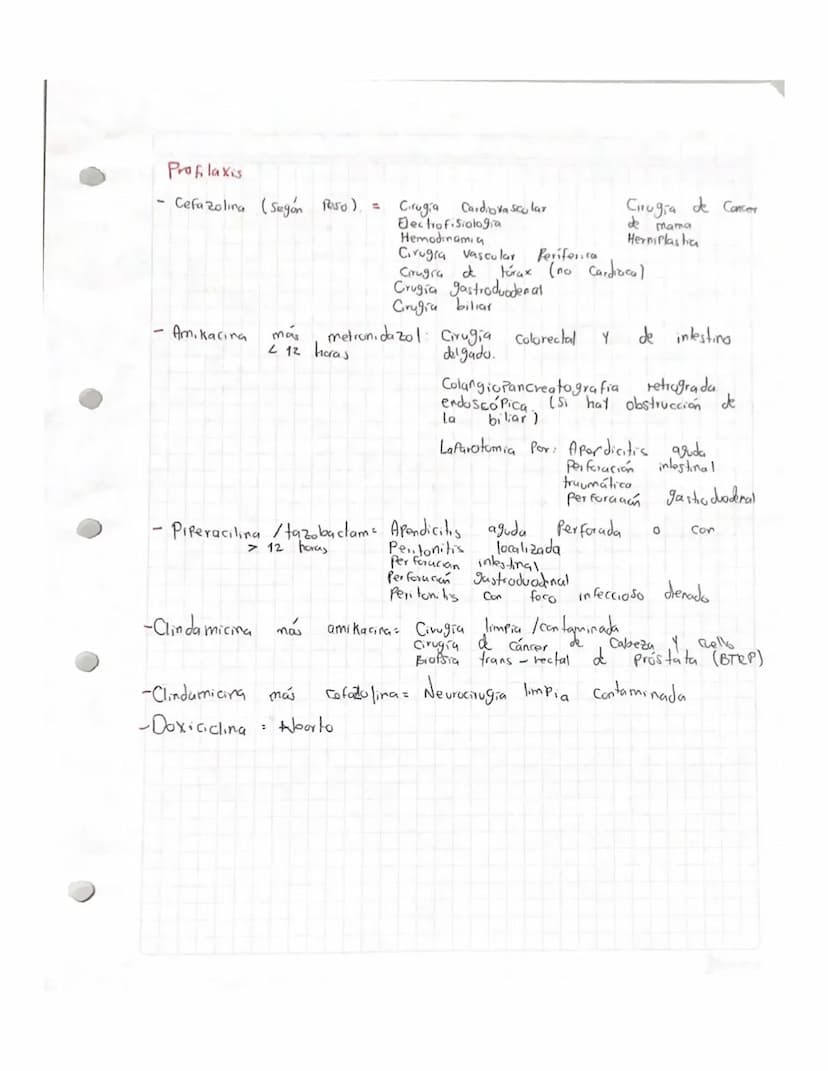 Profilaxis
- Cefazolina (según peso) = Cirugía Cardiovascular
Electrofisiología
Hemodinamia
Cirugía vascular Periferica
Cirugía de tórax (no Cardiaca)
Cirugía gastroduodenal
Cirugía biliar
Cirugía de Cancer
de mama
Herniplastia
- Amikacina más metronidazol: Cirugía colorectal y de intestino
< 12 horas delgado.
Colangiopancreatografia retrograda
endoscópica. (Si hay obstrucción de
la biliar)
Laparotomia Por: Apendicitis aguda
Perforación intestinal
traumático
Perforación gastroduodenal
- Piperacilina /tazobactam= Apendicitis aguda Perforada o con
> 12 horas Peritonitis localizada
Perforacion intestinal
Perforación gastroduodenal
Peritonitis con foco infeccioso drenado
- Clindamicina más amikacina= Cirugía limpia /contaminada
Cirugía de cáncer de Cabeza y cuello
Biopsia trans-rectal d próstata (BTRP)
- Clindamicina más cefazolina= Neurocirugía limpia contaminada
- Doxiciclina = Aborto